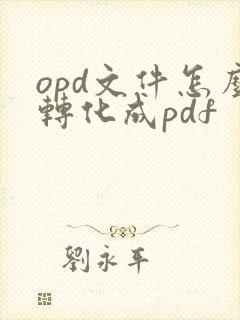 opd文件怎麼
轉化成pdf
劉永平